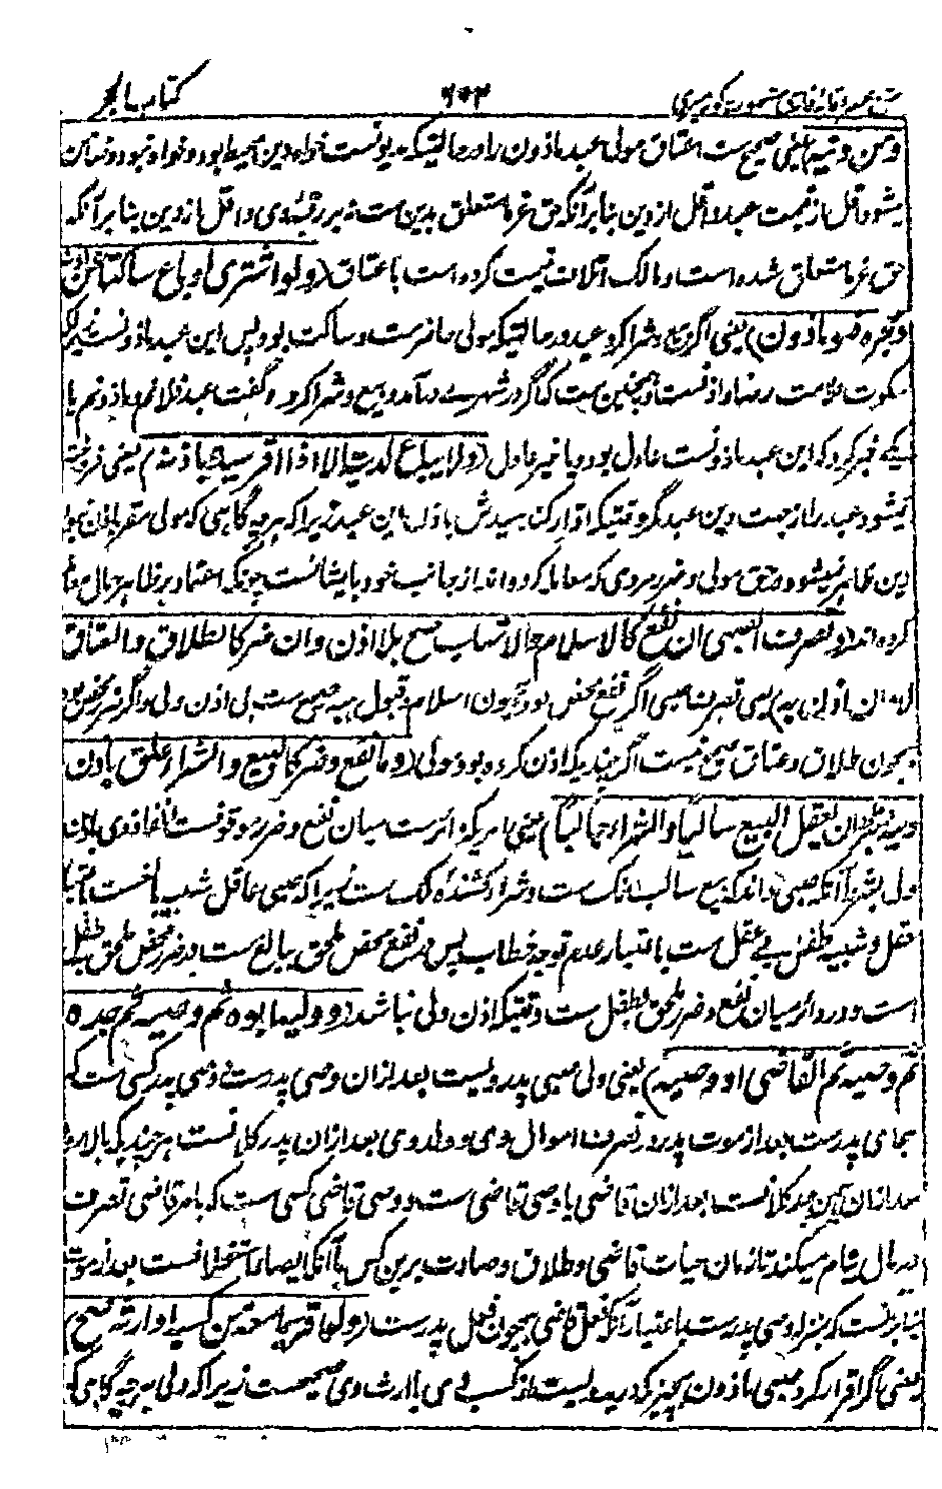 کتاب الحجر ۶۰۳
وضمن قیمته) یعنی صحیح ست اعتاق مولی عبد ماذون را در حالتیکه مدیونست خواه دین محیط بود و خواه نبود و ضامن
میشود اقل از قیمت عبد و اقل از دین بنا بر آنکه حق غرما متعلق بدین ست نه بر رقبه وی و اقل از دین بنا بر آنکه
حق غرما متعلق شده است و مالک اتلاف قیمت کرده است باعتاق (ولو اشتری او باع ساکتا عن
او حجره فهو ماذون) یعنی اگر بیع و شرا کرد عبد در حالتیکه مولی حاضرست و ساکت بود پس این عبد ماذونست زیراکه
سکوت علامت رضا و اذنست و همچنین ست که اگر در شهرے در آمد و بیع و شرا کرد و گفت عبد فلانم و ماذونم یا
یکے خبر کرد که این عبد ماذونست عادل بود یا غیر عادل (ولا یباع لدینه الا اذا اقر سیده باذنه) یعنی فروخته
نمیشود عبد را از جهت دین عبد مگر وقتیکه اقرار کند سیدش باذن این عبد زیراکه هر چه گاهی که مولی مقر باذن بود
دین ظاهر نمیشود در حق مولی و ضرر مردمی که معامله کرده اند از جانب خود با یشانست چونکه اعتماد بر ظاهر حال
کرده اند (وتصرف الصبی ان نفع کالاسلام والاتهاب صح بلا اذن وان ضر کالطلاق والعتاق
لا وان اذن به) یعنی تصرف صبی اگر نفع محض بود همچون اسلام و قبول هبه صحیح ست بی اذن ولی و اگر ضرر محض بود
همچون طلاق و عتاق صحیح نیست اگر چند یکه اذن کرده بود ولی (وما نفع وضر کالبیع والشراء علق باذن
ولیه بشرط ان یعقل البیع سالبا والشراء جالبا) یعنی امریکه دائرست میان نفع و ضرر موقوفست نفاذ وی باذن
ولی بشرط آنکه صبی داند که بیع سالب ملک ست و شرا کشنده ملک ست زیراکه صبی عاقل شبیه بالغست
عقل و شبیه طفل بے عقل ست باعتبار عدم توجه خطاب پس در نفع محض ملحق ببالغ ست و در ضرر محض ملحق بطفل
است و در دائر میان نفع و ضرر ملحق بطفل ست وقتیکه اذن ولی نباشد (وولیه ابوه ثم وصیه ثم جده
ثم وصیه ثم القاضی او وصیه) یعنی ولی صبی پدر ویست بعد ازان وصی پدرست و وصی پدر کسی ست که
بجای پدرست بعد از موت پدر در تصرف اموال وی و ولد وی بعد ازان پدر کلانست هر چند که بالا رود
بعد ازان وصی پدر کلانست بعد ازان قاضی یا وصی قاضی ست و وصی قاضی کسی ست که بامر قاضی تصرف
در مال یتیم میکند تا زمان حیات قاضی و اطلاق وصایت برین کس با آنکه ایصا استخلافست بعد از موت
بنا بر آنست که بمنزله وصی پدرست باعتبار آنکه فعل قاضی همچون فعل پدرست (ولو اقر بما معه من کسبه او ارثه صح)
یعنی اگر اقرار کرد صبی ماذون بچیزیکه در ید ویست از کسب وی یا ارث وی صحیحست زیراکه ولی هر چه گاهی که